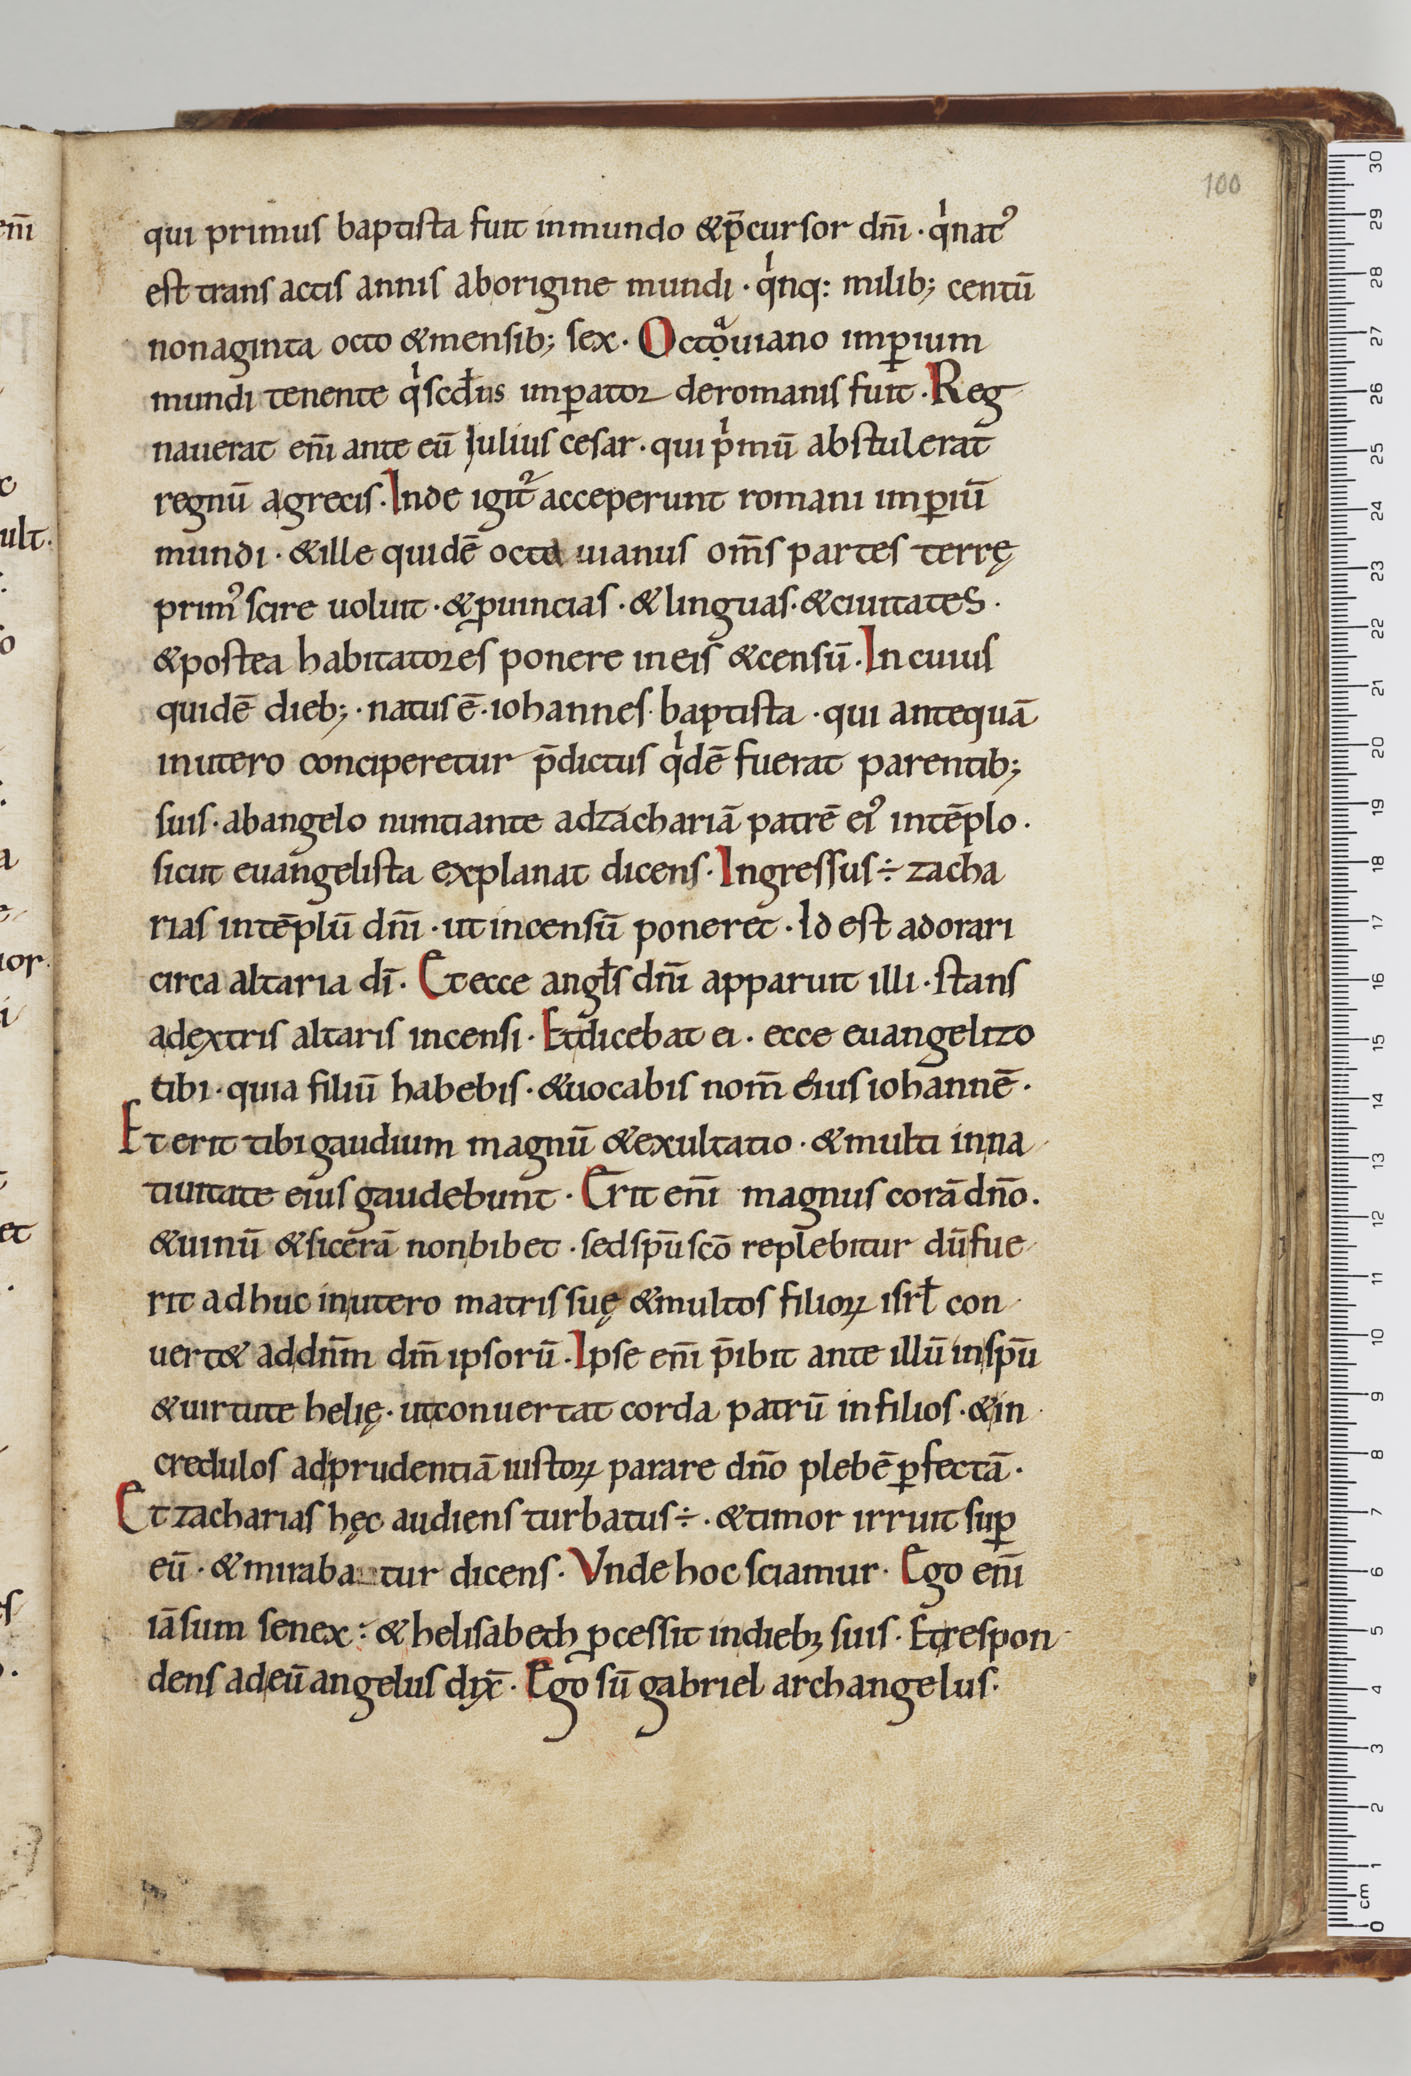 100
qui primus baptista fuit inmundo &p̄cursor dn̄i · qͥnatꝰ
est trans actis annis aborigine mundi · qͥnq: milib; centū
nonaginta octo &mensib; sex · Octọͣuiano imꝑium
mundi tenente qͥscd̄us imꝑator deromanis fuit · Reg
nauerat em̄ ante eū Iulius cesar · qui pͥmū abstulerat
regnū agrecis · Inde igit᷑ acceperunt romani imꝑiū
mundi · &ille quidē octa uianus om̄s partes terrę
primꝰ scire uoluit · &ꝓuincias · &linguas · &ciuitates ·
&postea habitatores ponere ineis &censū · Incuius
quidē dieb; · natus ē · iohannes baptista · qui antequā
inutero conciperetur p̄dictus qͥdē fuerat parentib;
suis · abangelo nuntiante adzachariā patrē eiꝰ intēplo ·
sicut euangelista explanat dicens · Ingressus ÷ zacha
rias intēplū dn̄i · ut incensū poneret · Id est adorari
circa altaria dī · Et ecce angl̄s dn̄i apparuit illi · stans
adextris altaris incensi · Etdicebat ei · ecce euangelizo
tibi · quia filiū habebis · &uocabis nom̄ eius iohannē ·
Et erit tibi gaudium magnū &exultatio · &multi inna
tiuitate eius gaudebunt · Erit em̄ magnus corā dn̄o .
&uinū &sicerā nonbibet · sedspū scō repl̄ebitur dū fue
rit adhuc inutero matris suę &multos filioꝝ isrl̄ con
uert& addn̄m dm̄ ipsorū · Ipse em̄ p̄ibit ante illū inspū
&uirtute helię · utconuertat corda patrū infilios · &in
credulos adprudentiā iustoꝝ parare dn̄o plebē ꝑfectā ·
Et zacharias hęc audiens turbatus ÷ · &timor irruit suꝑ
eū · &miraba tur dicens · Vnde hoc sciamur · Ego em̄
iā sum senex : &helisabeth ꝓcessit indieb; suis · Etrespon
dens adeū angelus dix̄ · Ego sū gabriel archangelus ·